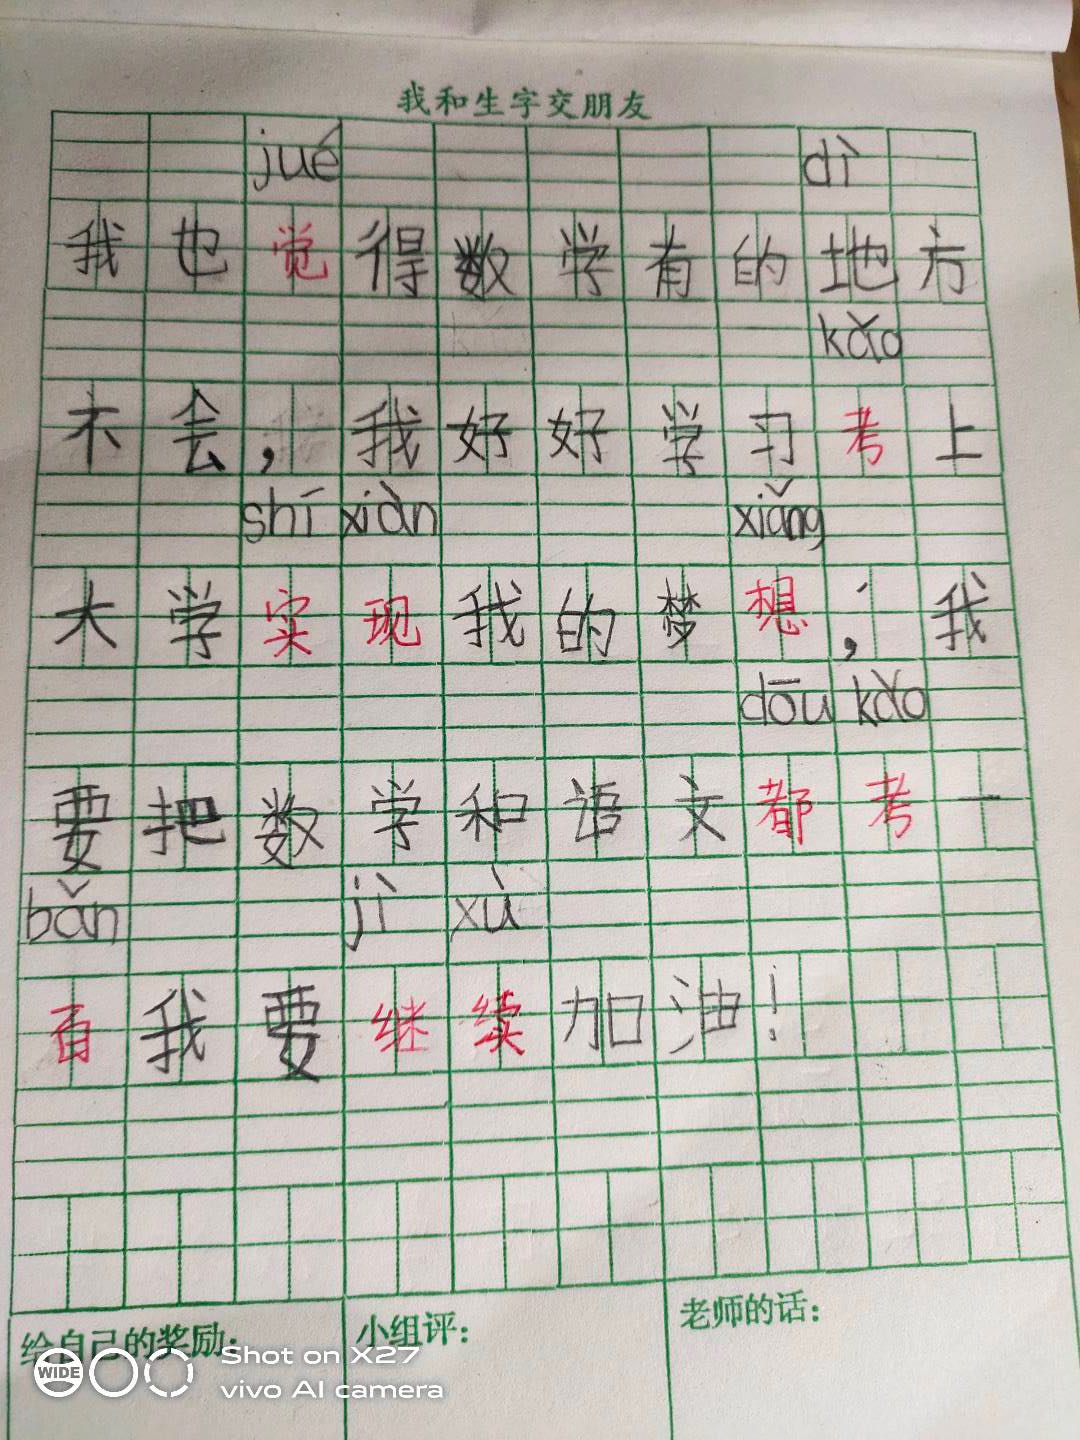 我和生字交朋友
jué dì
我也觉得数学有的地方
kǎo
不会，我好好学习考上
shī xiàn xiǎng
大学实现我的梦想，我
dōu kǎo
要把数学和语文都考一
bǎn jì xù
百我要继续加油！
给自己的奖励： 小组评： 老师的话：
WIDE Shot on X27
vivo AI camera